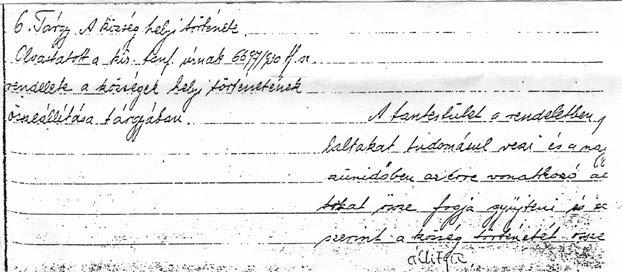 6. Tárgy. A község helyi története
Olvastatott a kir. tanf. úrnak 6697/930 ff. sz.
rendelete a községek helyi történetének
összeállítása tárgyában.
A tantestület a rendeletben
laltakat tudomásul veszi és a
szünidőben az erre vonatkozó
tokat össze fogja gyűjteni és
szerint a község történetét össze
állítja